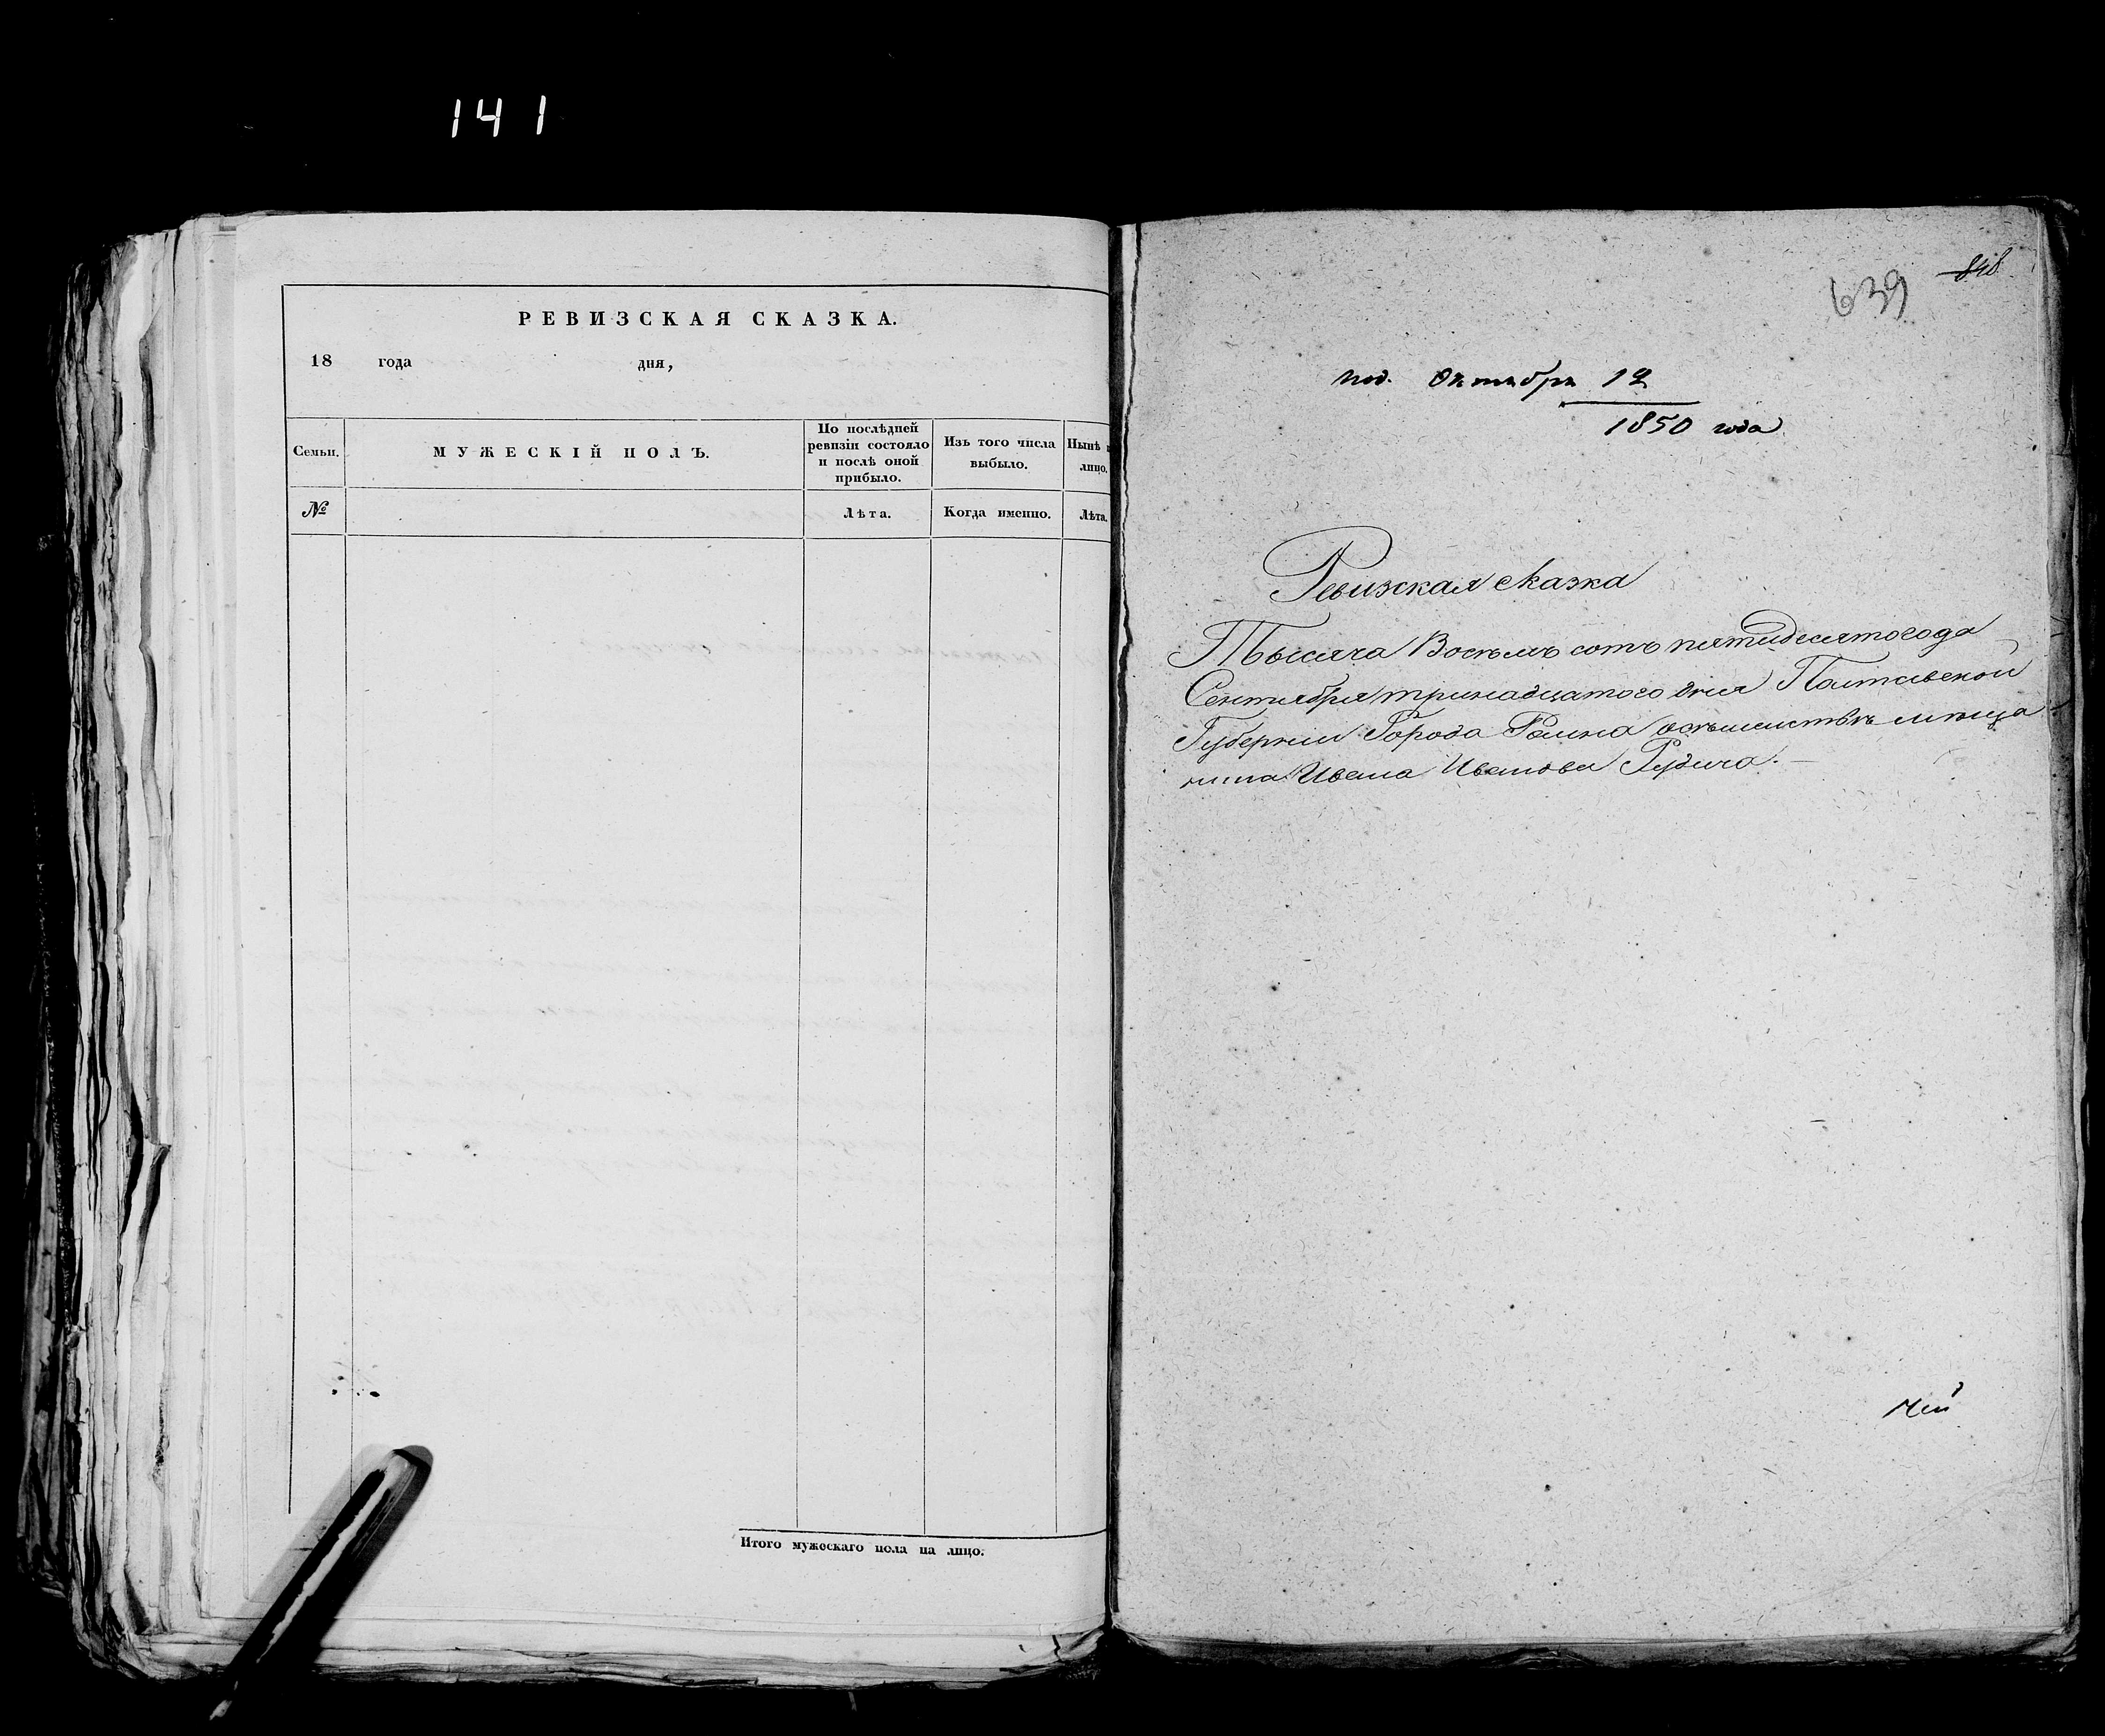 141
РЕВИЗСКАЯ СКАЗКА.
18 года дня,
Семьи.
МУЖЕСКІЙ ПОЛЪ.
По послѣдней
ревизіи состояло
и послѣ оной
прибыло.
Изъ того числа
выбыло.
Нынѣ
лицо.
№
Лѣта.
Когда именно.
Лѣта.
Итого мужескаго пола на лицо.
848
639
под. Октября 12
1850 года
Ревизская сказка
Тысяча Восемь сотъ пятидесятого года
Сентября тринадцатого дня Полтавской
Губерніи Города Ромна осемействѣ мѣща
нина Ивана Иванова Рудича.